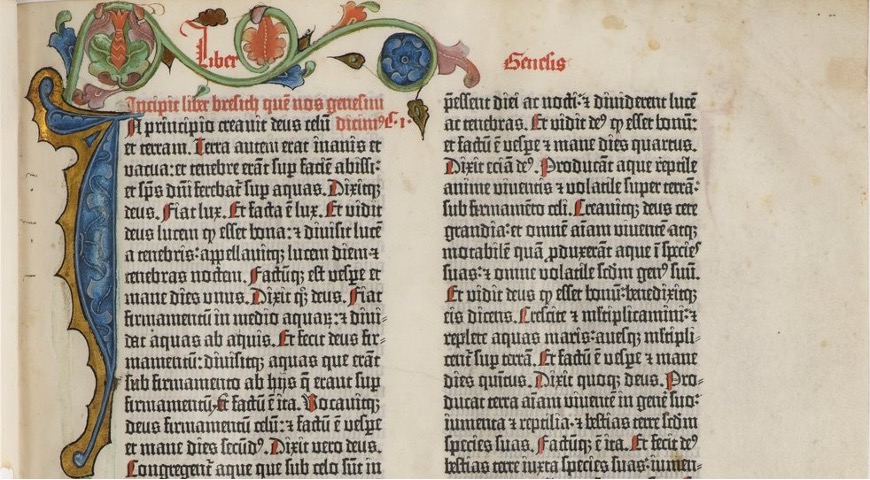 Liber
Genesis
Incipit liber bresith quē nos genesim
In principio creavit deus celū dicimꝰ C. 1.
et terram. Terra autem erat inanis et
vacua: et tenebre erāt sup faciē abissi:
et sp̄s dn̄i ferebať sup aquas. Dixitqꝫ
deus. Fiat lux. Et facta ē lux. Et vidit
deus lucem ꝙ esset bona: ⁊ divisit lucē
a tenebris: appellavitqꝫ lucem diem ⁊
tenebras noctem. Factūqꝫ est vespe et
mane dies unus. Dixit qꝫ deus. Fiat
firmamentū in medio aquaꝝ: ⁊ divi⸗
dat aquas ab aquis. Et fecit deus fir⸗
mamentū: divisitqꝫ aquas que erāt
sub firmamento ab hijs q̄ erant sup
firmamentū: et factū ē ita. Vocavitqꝫ
deus firmamentū celū: ⁊ factū ē vespe
et mane dies secūdꝰ. Dixit vero deus.
Congregenť aque que sub celo sūt in
p̄essent diei ac nocti: ⁊ dividerent lucē
ac tenebras. Et vidit deꝰ ꝙ esset bonū:
et factū ē vespe ⁊ mane dies quartus.
Dixit eciā deꝰ. Producāt aque reptile
anime viventis ⁊ volatile super terrā:
sub firmamēto celi. Creavitqꝫ deus cete
grandia: et omnē aīam viventē atqꝫ
motabilē quā ꝓduxerāt aque ī species
suas: ⁊ omne volatile scd̄m genꝰ suū.
Et vidit deus ꝙ esset bonū: benedixitqꝫ
eis dicens. Crescite ⁊ mĺtiplicamini: ⁊
replete aquas maris: avesqꝫ mĺtipli⸗
cenť sup terrā. Et factū ē vespe ⁊ mane
dies quītus. Dixit quoqꝫ deus. Pro⸗
ducat terra aīam viventē in gene̅ suo:
iumenta ⁊ reptilia: ⁊ bestias terre scd̄m
species suas. Factūqꝫ ē ita. Et fecit deꝰ
bestias terre iuxta species suas: iumen⸗